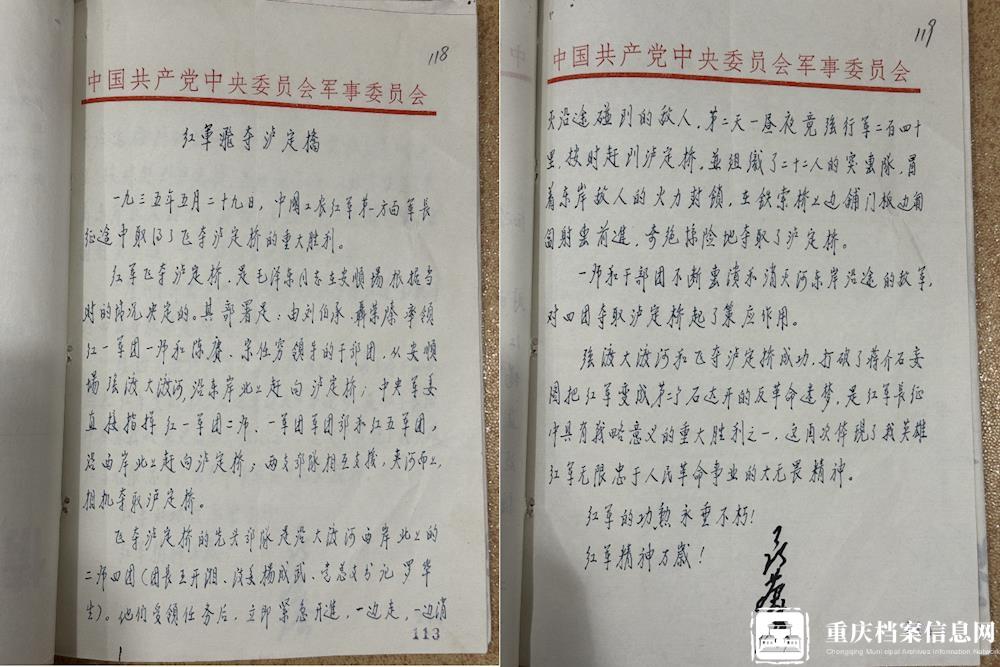 118
中国共产党中央委员会军事委员会
红军飛夺泸定橋
一九三五年五月二十九日，中國工农红军第一方面軍長
征途中取得了飞夺泸定桥的重大胜利。
红军飞夺泸定桥，是毛泽东同志在安順場根据当
时的情况决定的。其部署是：由刘伯承、聶荣臻率领
红一军团一师和陈赓、宋任穷领导的干部团，从安順
場强渡大渡河，沿东岸北上赶向泸定桥；中央军委
直接指挥红一军团二师、一军团军团部和红五军团，
沿西岸北上赶向泸定桥；两支部隊相互支援，夹河而上，
相机夺取泸定桥。
飞夺泸定桥的先头部隊是沿大渡河西岸北上的
二师四团（团長王开湘、政委楊成武、党总支书记罗华
生）。他们受领任务后，立即紧急开進，一边走，一边消
113
119
中国共产党中央委员会军事委员会
灭沿途碰到的敌人，第二天一昼夜竟强行军二百四十
里，按时赶到泸定桥，並组織了二十二人的突击隊，冒
着东岸敌人的火力封锁，在铁索桥上边铺门板边匍
匐射击前進，奇绝惊险地夺取了泸定桥。
一师和干部团不断击溃和消灭河东岸沿途的敌军，
对四团夺取泸定桥起了策应作用。
强渡大渡河和飞夺泸定桥成功，打破了蒋介石妄
图把红军变成第二个石达开的反革命迷梦，是红军長征
中具有战略意义的重大胜利之一，这再次体现了我英雄
红军无限忠于人民革命事业的大无畏精神。
红军的功勲永垂不朽！
红军精神万歲！
重庆档案信息网
Chongqing Municipal Archives Information Network